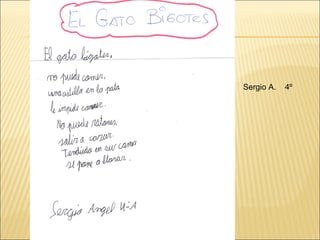 EL GATO BIGOTES
El gato bigotes,
no puede comer,
una astilla en la pata
le impide comer.
No puede ratones,
salir a cazar.
Tendido en su cama
se pone a llorar.
Sergio Angel 4º A
Sergio A. 4º